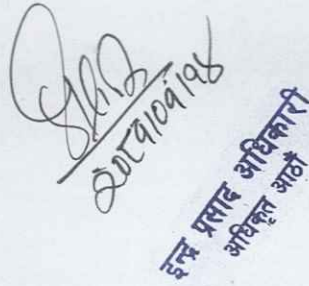 २०८१/०१/१४
इन्द्र प्रसाद अधिकारी
अधिकृत आठौं